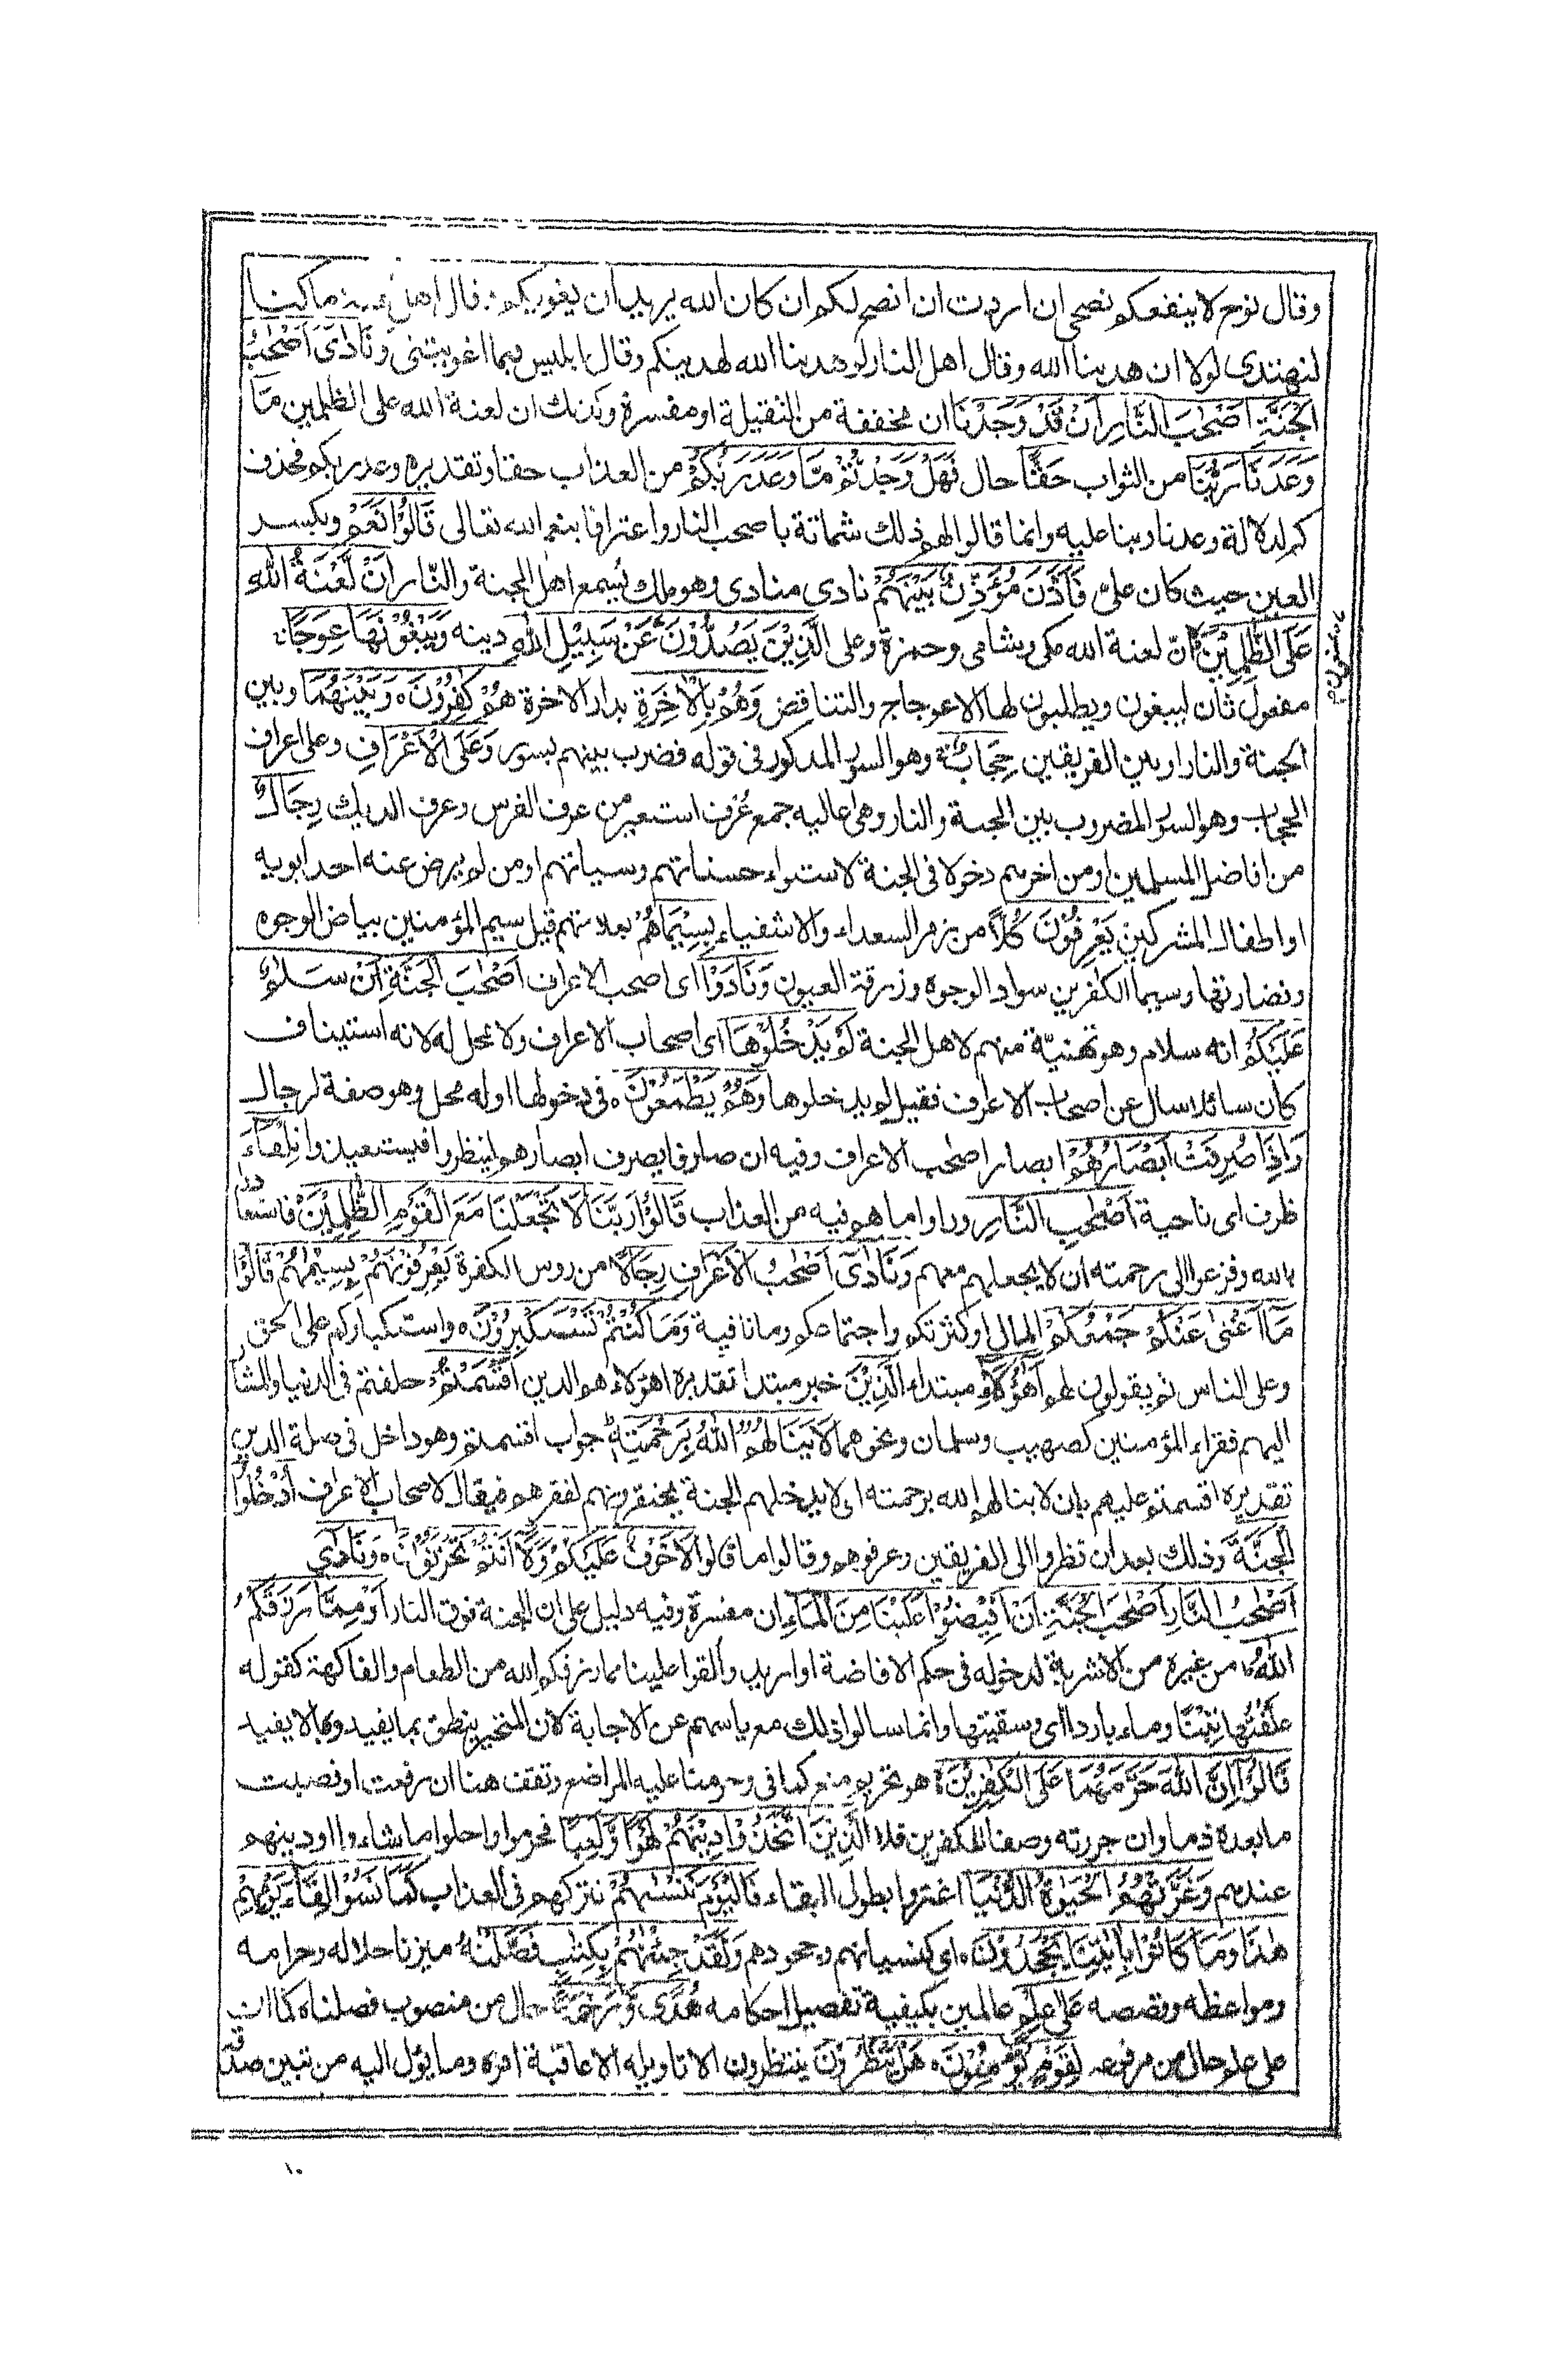 وقال نوح لا ينفعكم نصحى ان اردت ان انصح لكم ان كان الله يريد ان يغويكم وقال اهل الجنة ما كنا
لنهتدى لولا ان هدينا الله وقال اهل النار لو هدينا الله لهدينكم وقال ابليس بما اغويتنى وَنَادٰىٓ اَصْحٰبُ
الْجَنَّةِ اَصْحٰبَ النَّارِ اَنْ قَدْ وَجَدْنَا ان مخففة من الثقيلة او مفسرة وكذلك ان لعنة الله على الظلمين مَا
وَعَدَنَا رَبُّنَا من الثواب حَقًّا حال فَهَلْ وَجَدْتُّمْ مَّا وَعَدَ رَبُّكُمْ من العذاب حقا وتقديره وعد ربكم فحذف
كم لدلالة وعدنا ربنا عليه وانما قالوا لهم ذلك شماتة باصحب النار واعترافا بنعم الله تعالى قَالُوْا نَعَمْ وبكسر
العين حيث كان علىّ فَاَذَّنَ مُؤَذِّنٌ بَيْنَهُمْ نادى منادى وهو ملك يسمع اهل الجنة والنار اَنْ لَّعْنَةُ اللّٰهِ
عَلَى الظّٰلِمِيْنَ انّ لعنة الله مكى وشامى وحمزة وعلى الَّذِيْنَ يَصُدُّوْنَ عَنْ سَبِيْلِ اللّٰهِ دينه وَيَبْغُوْنَهَا عِوَجًا
مفعول ثان ليبغون ويطلبون لها الاعوجاج والتناقض وَهُمْ بِالْاٰخِرَةِ بدار الاخرة هُمْ كٰفِرُوْنَ وَبَيْنَهُمَا وبين
الجنة والنار او بين الفريقين حِجَابٌ وهو السور المذكور فى قوله فضرب بينهم بسور وَعَلَى الْاَعْرَافِ وعلى اعراف
الحجاب وهو السور المضروب بين الجنة والنار وهى اعاليه جمع عُرف استعير من عرف الفرس وعرف الديك رِجَالٌ
من افاضل المسلمين او من اخرهم دخولا فى الجنة لاستواء حسناتهم وسياتهم او من لم يرض عنه احد ابويه
او اطفال المشركين يَعْرِفُوْنَ كُلًّا من زمر السعداء والاشقياء بِسِيْمٰهُمْ بعلامتهم قيل سيم المؤمنين بياض الوجوه
ونضارتها وسيما الكفرين سواد الوجوه وزرقة العيون وَنَادَوْا اى اصحب الاعراف اَصْحٰبَ الْجَنَّةِ اَنْ سَلٰمٌ
عَلَيْكُمْ انه سلام وهو تهنيّة منهم لاهل الجنة لَمْ يَدْخُلُوْهَا اى اصحاب الاعراف ولا محل له لانه استيناف
كان سائلا سال عن اصحاب الاعراف فقيل لم يدخلوها وَهُمْ يَطْمَعُوْنَ فى دخولها او له محل وهو صفة لرجال
وَاِذَا صُرِفَتْ اَبْصَارُهُمْ ابصار اصحب الاعراف وفيه ان صارفا يصرف ابصارهم لينظروا فيستعيذوا تِلْقَآءَ
ظرف اى ناحية اَصْحٰبِ النَّارِ وراوا ما هم فيه من العذاب قَالُوْا رَبَّنَا لَا تَجْعَلْنَا مَعَ الْقَوْمِ الظّٰلِمِيْنَ فاستعاذوا
بالله وفزعوا الى رحمته ان لا يجعلهم معهم وَنَادٰىٓ اَصْحٰبُ الْاَعْرَافِ رِجَالًا من روس الكفرة يَعْرِفُوْنَهُمْ بِسِيْمٰهُمْ قَالُوْا
مَآ اَغْنٰى عَنْكُمْ جَمْعُكُمْ المال او كثرتكم واجتماعكم وما نافية وَمَا كُنْتُمْ تَسْتَكْبِرُوْنَ واستكباركم على الحق
وعلى الناس ثم يقولون لهم اَهٰٓؤُلَآءِ مبتداء الَّذِيْنَ خبر مبتدا تقديره اهؤلاء هم الذين اَقْسَمْتُمْ حلفتم فى الدنيا والمشار
اليهم فقراء المؤمنين كصهيب وسلمان ونحوهما لَا يَنَالُهُمُ اللّٰهُ بِرَحْمَةٍ جواب اقسمتم وهو داخل فى صلة الذين
تقديره اقسمتم عليهم بان لا ينالهم الله برحمته اى لا يدخلهم الجنة يحتقرونهم لفقرهم فيقال لاصحاب الاعراف اُدْخُلُوا
الْجَنَّةَ وذلك بعد ان نظروا الى الفريقين وعرفوهم وقالوا ما قالوا لَا خَوْفٌ عَلَيْكُمْ وَلَآ اَنْتُمْ تَحْزَنُوْنَ وَنَادٰىٓ
اَصْحٰبُ النَّارِ اَصْحٰبَ الْجَنَّةِ اَنْ اَفِيْضُوْا عَلَيْنَا مِنَ الْمَآءِ ان مفسرة وفيه دليل على ان الجنة فوق النار اَوْ مِمَّا رَزَقَكُمُ
اللّٰهُ من غيره من الاشربة لدخوله فى حكم الافاضة او اريد والقوا علينا مما رزقكم الله من الطعام والفاكهة كقوله
علفتها تبنًا وماء باردا اى وسقيتها وانما سالوا ذلك مع ياسهم عن الاجابة لان المتحير ينطق بما يفيد وبما لا يفيد
قَالُوْٓا اِنَّ اللّٰهَ حَرَّمَهُمَا عَلَى الْكٰفِرِيْنَ هو تحريم منع كما فى وحرمنا عليه المراضع وتقف هنا ان رفعت او نصبت
ما بعده ذما وان جررته وصفا للكفرين فلا الَّذِيْنَ اتَّخَذُوْا دِيْنَهُمْ لَهْوًا وَّلَعِبًا فحرموا واحلوا ما شاءوا او دينهم
عندهم وَغَرَّتْهُمُ الْحَيٰوةُ الدُّنْيَا اغتروا بطول البقاء فَالْيَوْمَ نَنْسٰهُمْ نتركهم فى العذاب كَمَا نَسُوْا لِقَآءَ يَوْمِهِمْ
هٰذَا وَمَا كَانُوْا بِاٰيٰتِنَا يَجْحَدُوْنَ اى كنسيانهم وجحودهم وَلَقَدْ جِئْنٰهُمْ بِكِتٰبٍ فَصَّلْنٰهُ ميزنا حلاله وحرامه
ومواعظه وقصصه عَلٰى عِلْمٍ عالمين بكيفية تفصيل احكامه هُدًى وَّرَحْمَةً حال من منصوب فصلناه كما ان
على علم حال من مرفوعه لِقَوْمٍ يُّؤْمِنُوْنَ هَلْ يَنْظُرُوْنَ ينتظرون الا تاويله الا عاقبة امره وما يؤل اليه من تبين صدقه
١٠